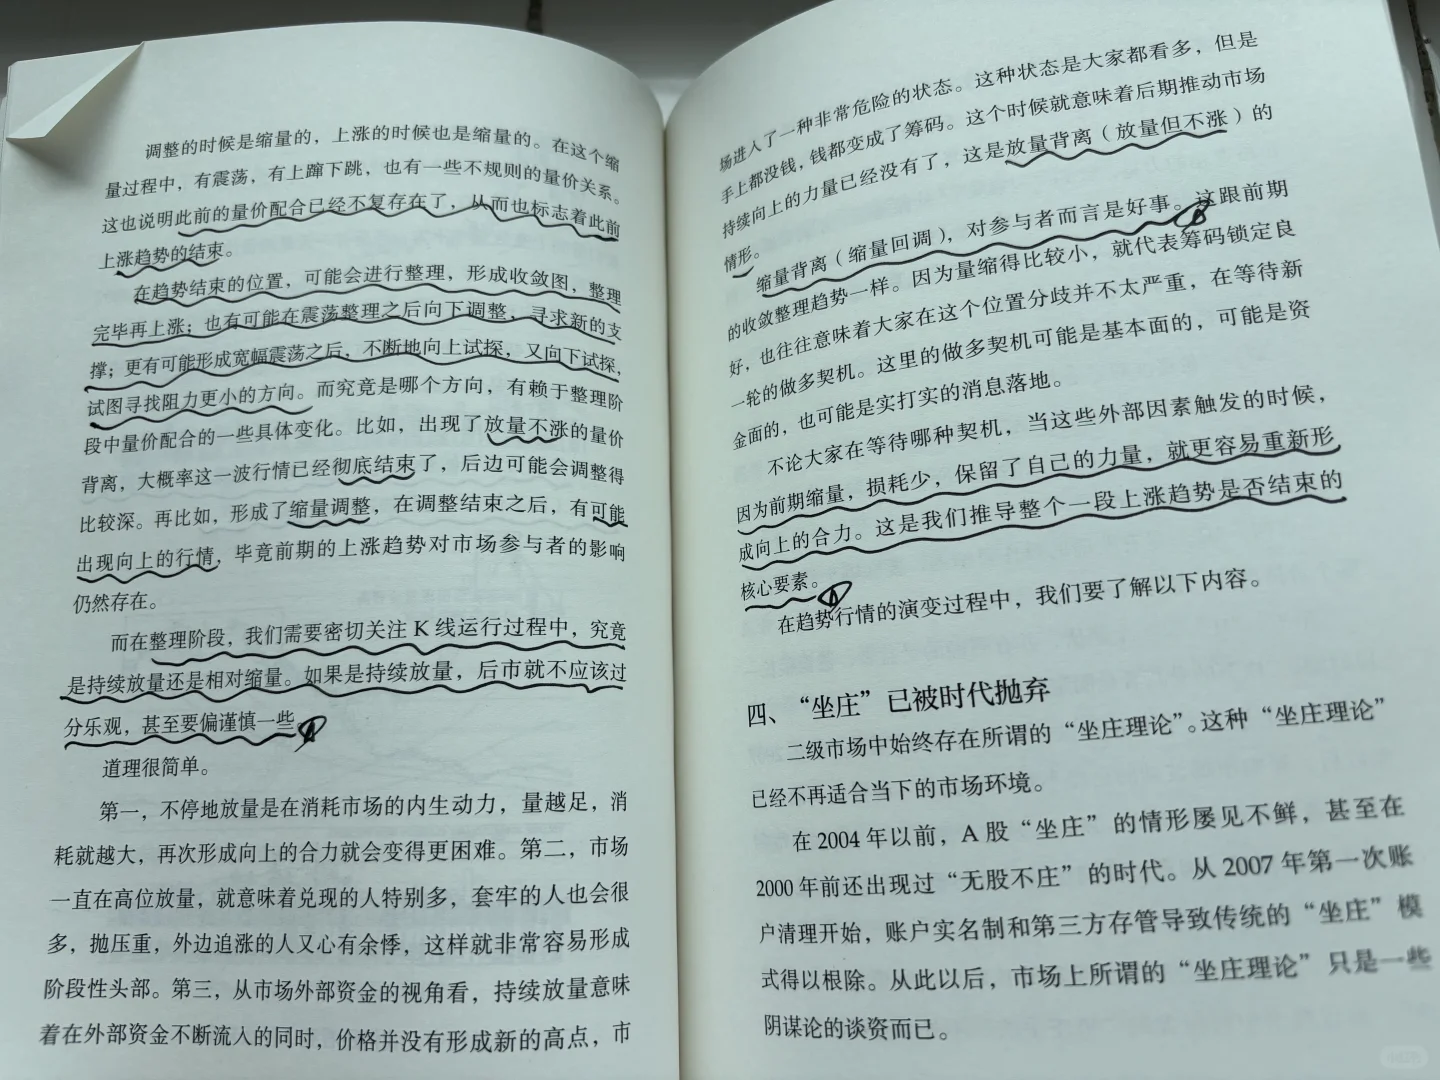 调整的时候是缩量的，上涨的时候也是缩量的。在这个缩
量过程中，有震荡，有上蹿下跳，也有一些不规则的量价关系。
这也说明此前的量价配合已经不复存在了，从而也标志着此前
上涨趋势的结束。
在趋势结束的位置，可能会进行整理，形成收敛图，整理
完毕再上涨；也有可能在震荡整理之后向下调整，寻求新的支
撑；更有可能形成宽幅震荡之后，不断地向上试探，又向下试探，
试图寻找阻力更小的方向。而究竟是哪个方向，有赖于整理阶
段中量价配合的一些具体变化。比如，出现了放量不涨的量价
背离，大概率这一波行情已经彻底结束了，后边可能会调整得
比较深。再比如，形成了缩量调整，在调整结束之后，有可能
出现向上的行情，毕竟前期的上涨趋势对市场参与者的影响
仍然存在。
而在整理阶段，我们需要密切关注 K 线运行过程中，究竟
是持续放量还是相对缩量。如果是持续放量，后市就不应该过
分乐观，甚至要偏谨慎一些。
道理很简单。
第一，不停地放量是在消耗市场的内生动力，量越足，消
耗就越大，再次形成向上的合力就会变得更困难。第二，市场
一直在高位放量，就意味着兑现的人特别多，套牢的人也会很
多，抛压重，外边追涨的人又心有余悸，这样就非常容易形成
阶段性头部。第三，从市场外部资金的视角看，持续放量意味
着在外部资金不断流入的同时，价格并没有形成新的高点，市
场进入了一种非常危险的状态。这种状态是大家都看多，但是
手上都没钱，钱都变成了筹码。这个时候就意味着后期推动市场
持续向上的力量已经没有了，这是放量背离（放量但不涨）的
情形。
缩量背离（缩量回调），对参与者而言是好事。这跟前期
的收敛整理趋势一样。因为量缩得比较小，就代表筹码锁定良
好，也往往意味着大家在这个位置分歧并不太严重，在等待新
一轮的做多契机。这里的做多契机可能是基本面的，可能是资
金面的，也可能是实打实的消息落地。
不论大家在等待哪种契机，当这些外部因素触发的时候，
因为前期缩量，损耗少，保留了自己的力量，就更容易重新形
成向上的合力。这是我们推导整个一段上涨趋势是否结束的
核心要素。
在趋势行情的演变过程中，我们要了解以下内容。
四、“坐庄”已被时代抛弃
二级市场中始终存在所谓的“坐庄理论”。这种“坐庄理论”
已经不再适合当下的市场环境。
在 2004 年以前，A 股“坐庄”的情形屡见不鲜，甚至在
2000 年前还出现过“无股不庄”的时代。从 2007 年第一次账
户清理开始，账户实名制和第三方存管导致传统的“坐庄”模
式得以根除。从此以后，市场上所谓的“坐庄理论”只是一些
阴谋论的谈资而已。